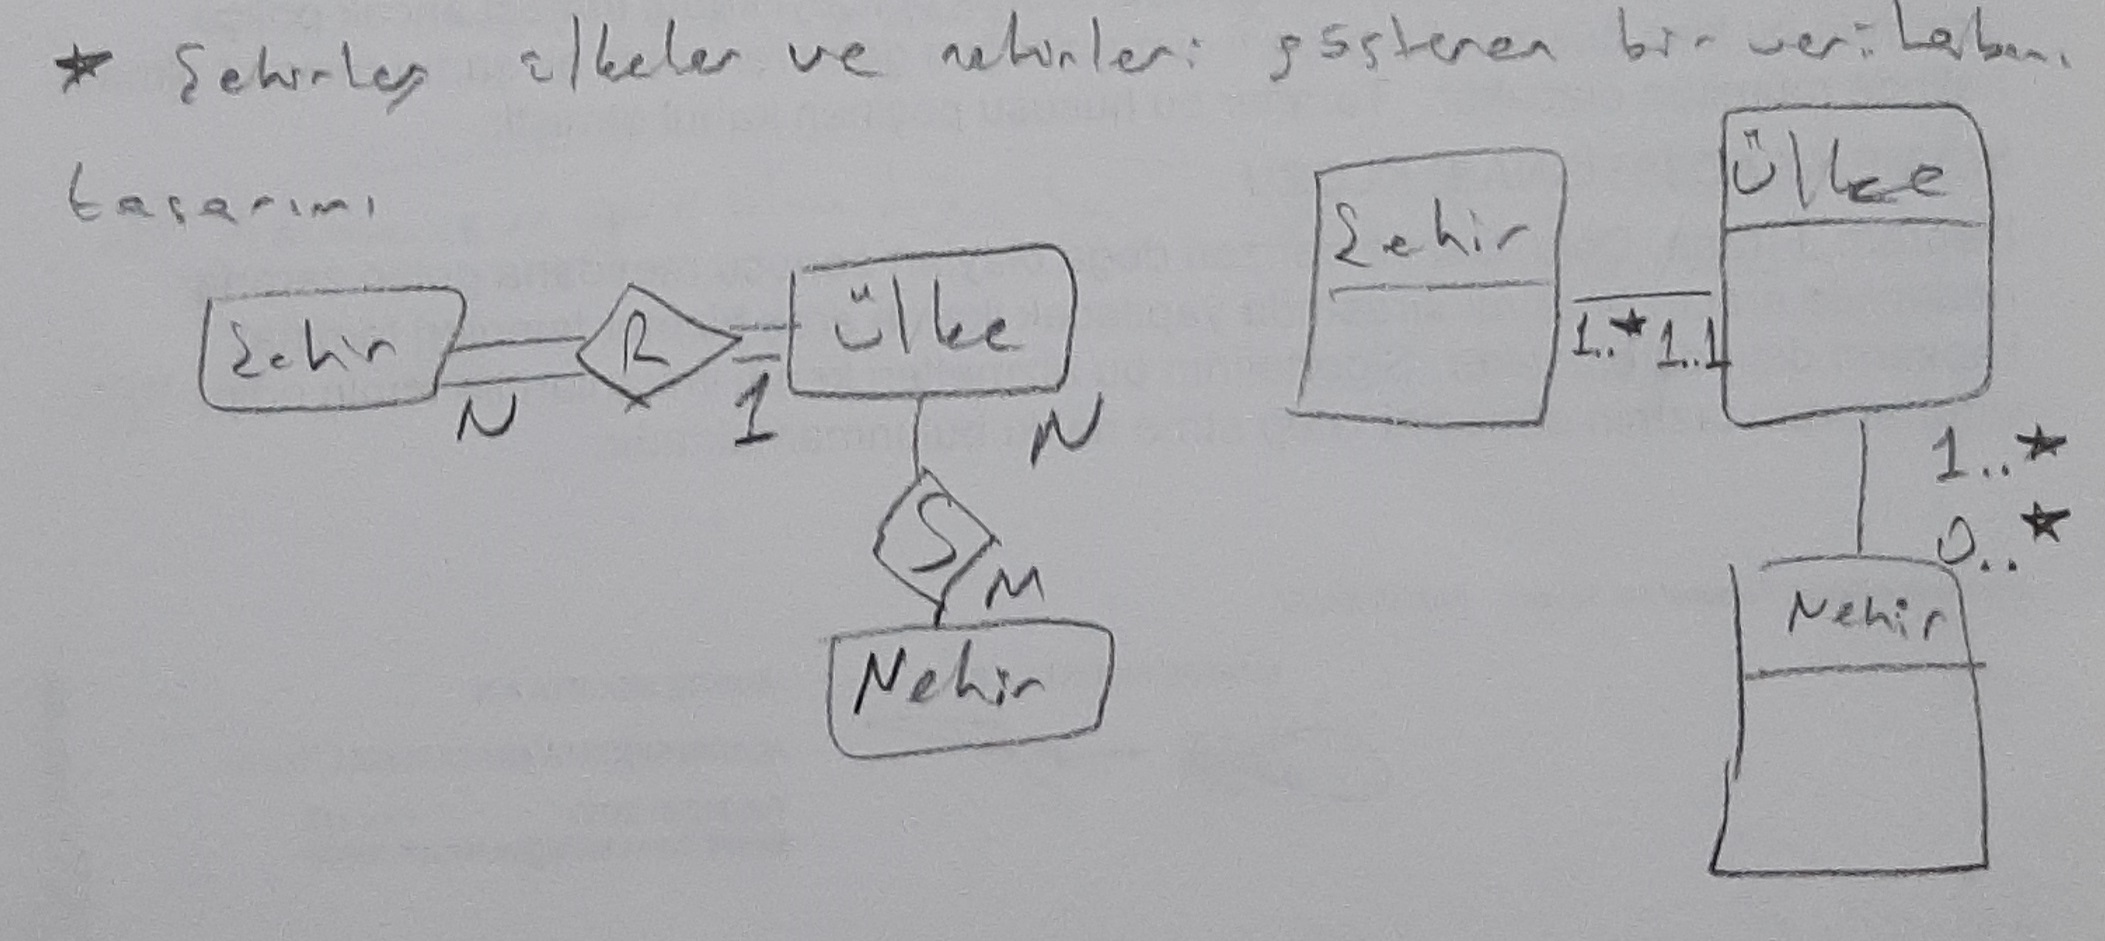 ★ Şehirler ülkeler ve nehirleri gösteren bir veritabanı
tasarımı
Şehir N R 1 Ülke N
S
M
Nehir
Şehir 1..★ 1..1 Ülke
1..★
0..★
Nehir